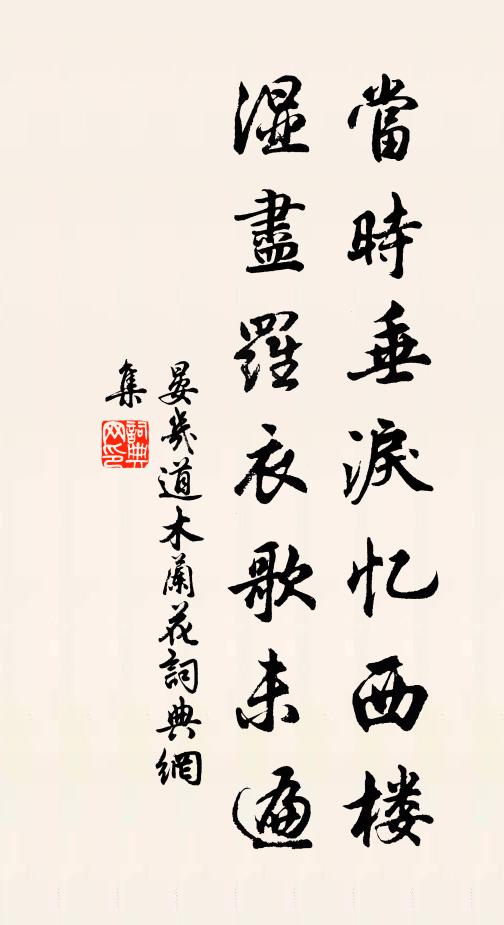 當時垂淚忆西楼
濕盡羅衣歌未遍
晏幾道木蘭花詞典網
集
詞典网印